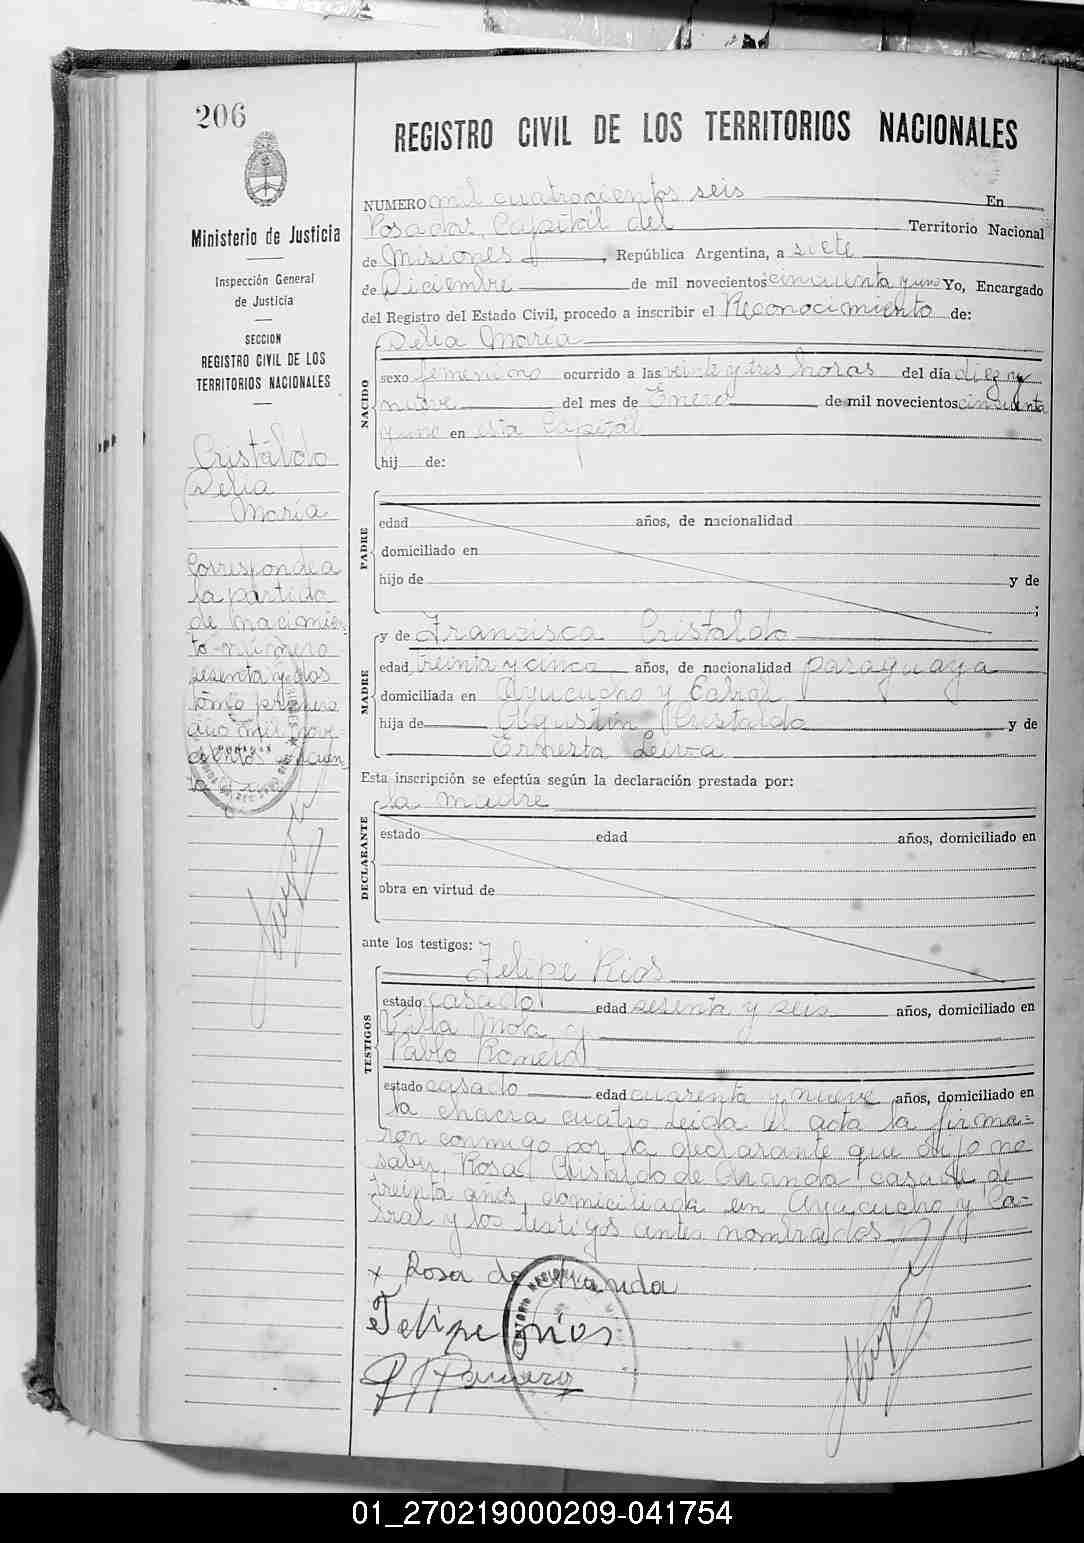 206
Ministerio de Justicia
Inspección General
de Justicia
SECCION
REGISTRO CIVIL DE LOS
TERRITORIOS NACIONALES
Cristaldo
Delia
María
Corresponde a
la partida
de nacimien-
to número
sesenta y dos
tomo primero
año mil nove-
REGISTRO CIVIL DE LOS TERRITORIOS NACIONALES
NUMERO mil cuatrocientos seis En
Posadas, Capital del Territorio Nacional
de Misiones, República Argentina, a siete
de Diciembre de mil novecientos cincuenta y uno Yo, Encargado
del Registro del Estado Civil, procedo a inscribir el Reconocimiento de:
Delia María
NACIDO
sexo femenino ocurrido a las veinte y tres horas del día diez y
nueve del mes de Enero de mil novecientos cincuenta
y uno en esta Capital
hij de:
PADRE
edad años, de nacionalidad
domiciliado en
hijo de y de
;
y de Francisca Cristaldo
MADRE
edad treinta y cinco años, de nacionalidad paraguaya
domiciliada en Ayacucho y Cabral
hija de Agustin Cristaldo y de
Ernesta Leiva
Esta inscripción se efectúa según la declaración prestada por:
la madre
DECLARANTE
estado edad años, domiciliado en
obra en virtud de
ante los testigos: Felipe Rios
TESTIGOS
estado casado edad sesenta y seis años, domiciliado en
Villa Mola y
Pablo Romero
estado casado edad cuarenta y nueve años, domiciliado en
la chacra cuatro. Leida el acta la firma=
ron conmigo por la declarante que dijo no
saber, Rosa Cristaldo de Aranda, casada de
treinta años, domiciliada en Ayacucho y Ca-
bral y los testigos antes nombrados
x Rosa de Aranda
Felipe Rios
P Romero
01_270219000209-041754